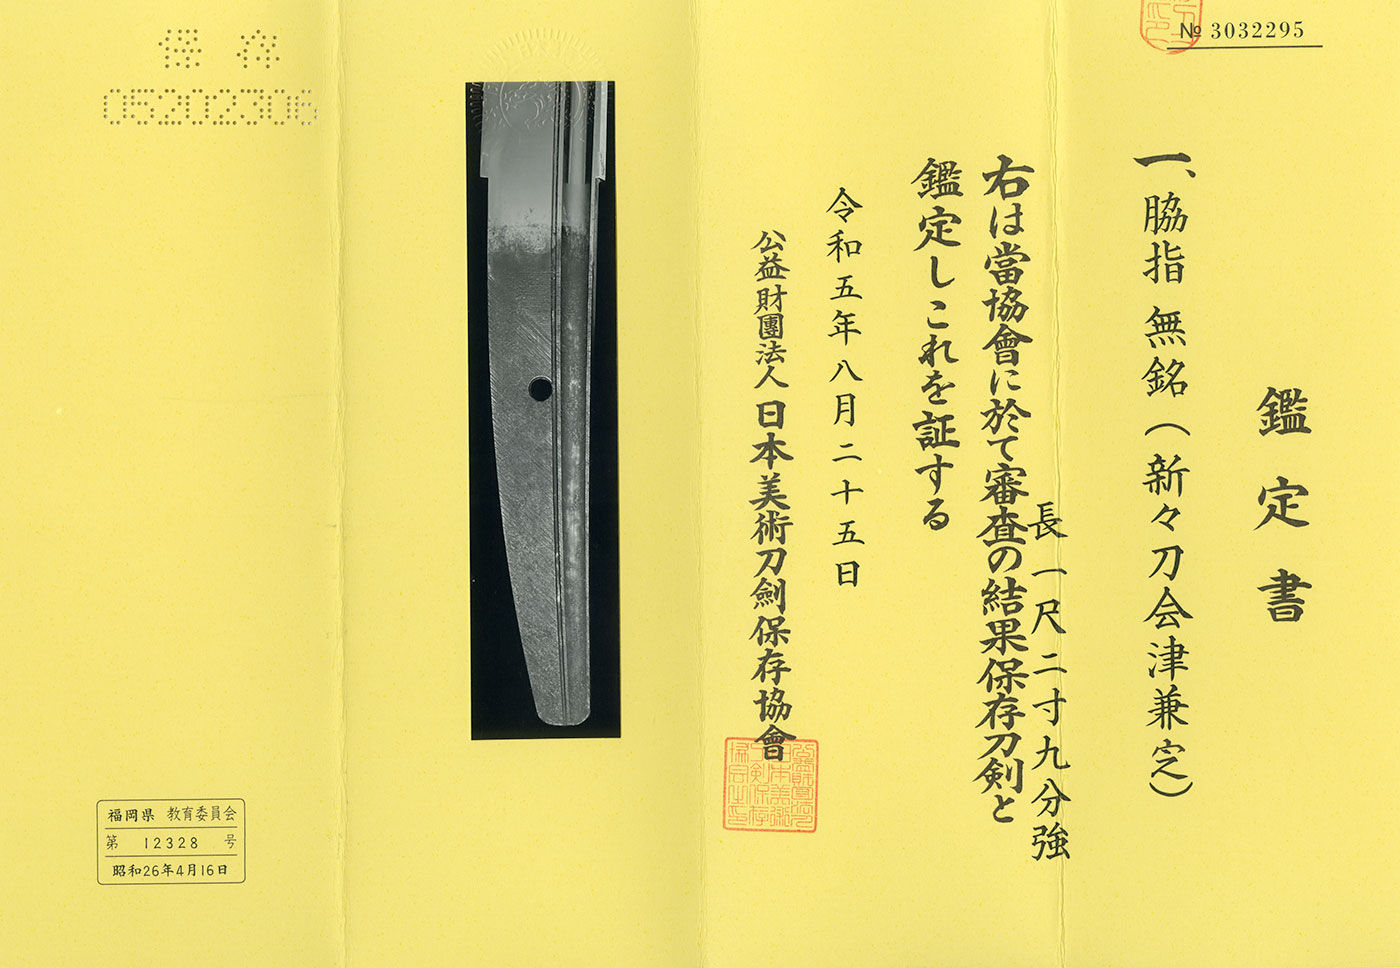 № 3032295
鑑定書
一、脇指 無銘（新々刀会津兼㝎）
長一尺二寸九分強
右は當協會に於て審査の結果保存刀剣と
鑑定しこれを証する
令和五年八月二十五日
公益財團法人 日本美術刀劍保存協會
保存
05202306
福岡県 教育委員会
第 12328 号
昭和26年4月16日